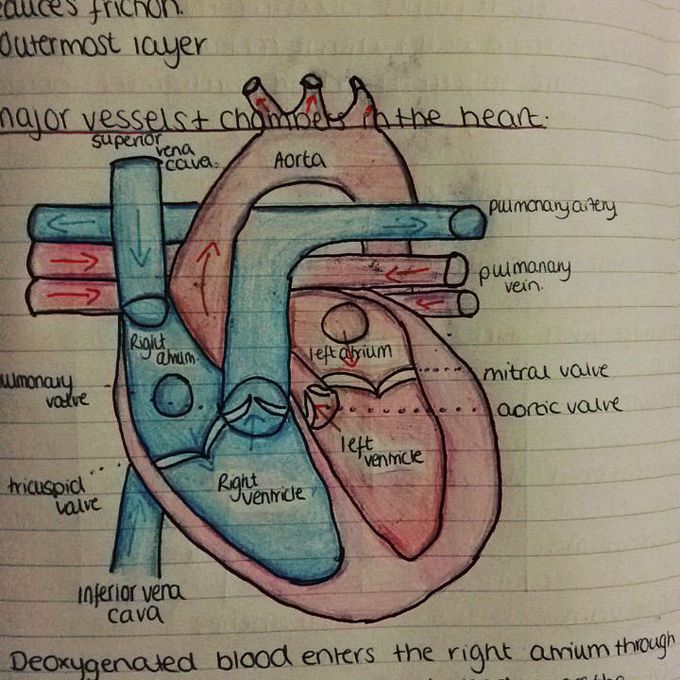 educes friction.
outermost layer
major vessels + chambers in the heart.
superior
vena
cava.
Aorta
pulmonary artery
pulmanary
vein.
Right
atrium
left atrium
mitral valve
ulmonary
valve
aortic valve
left
ventricle
Right
ventricle
tricuspid
valve
Inferior vena
cava
Deoxygenated blood enters the right atrium through